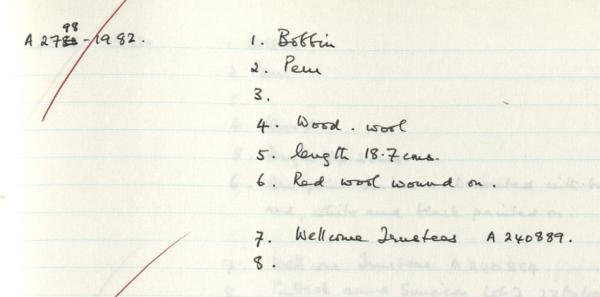 A 2798 - 1982. 1. Bobbin
2. Peru
3.
4. Wood. wool
5. length 18.7 cms.
6. Red wool wound on.
7. Wellcome Trustees A 240889.
8.